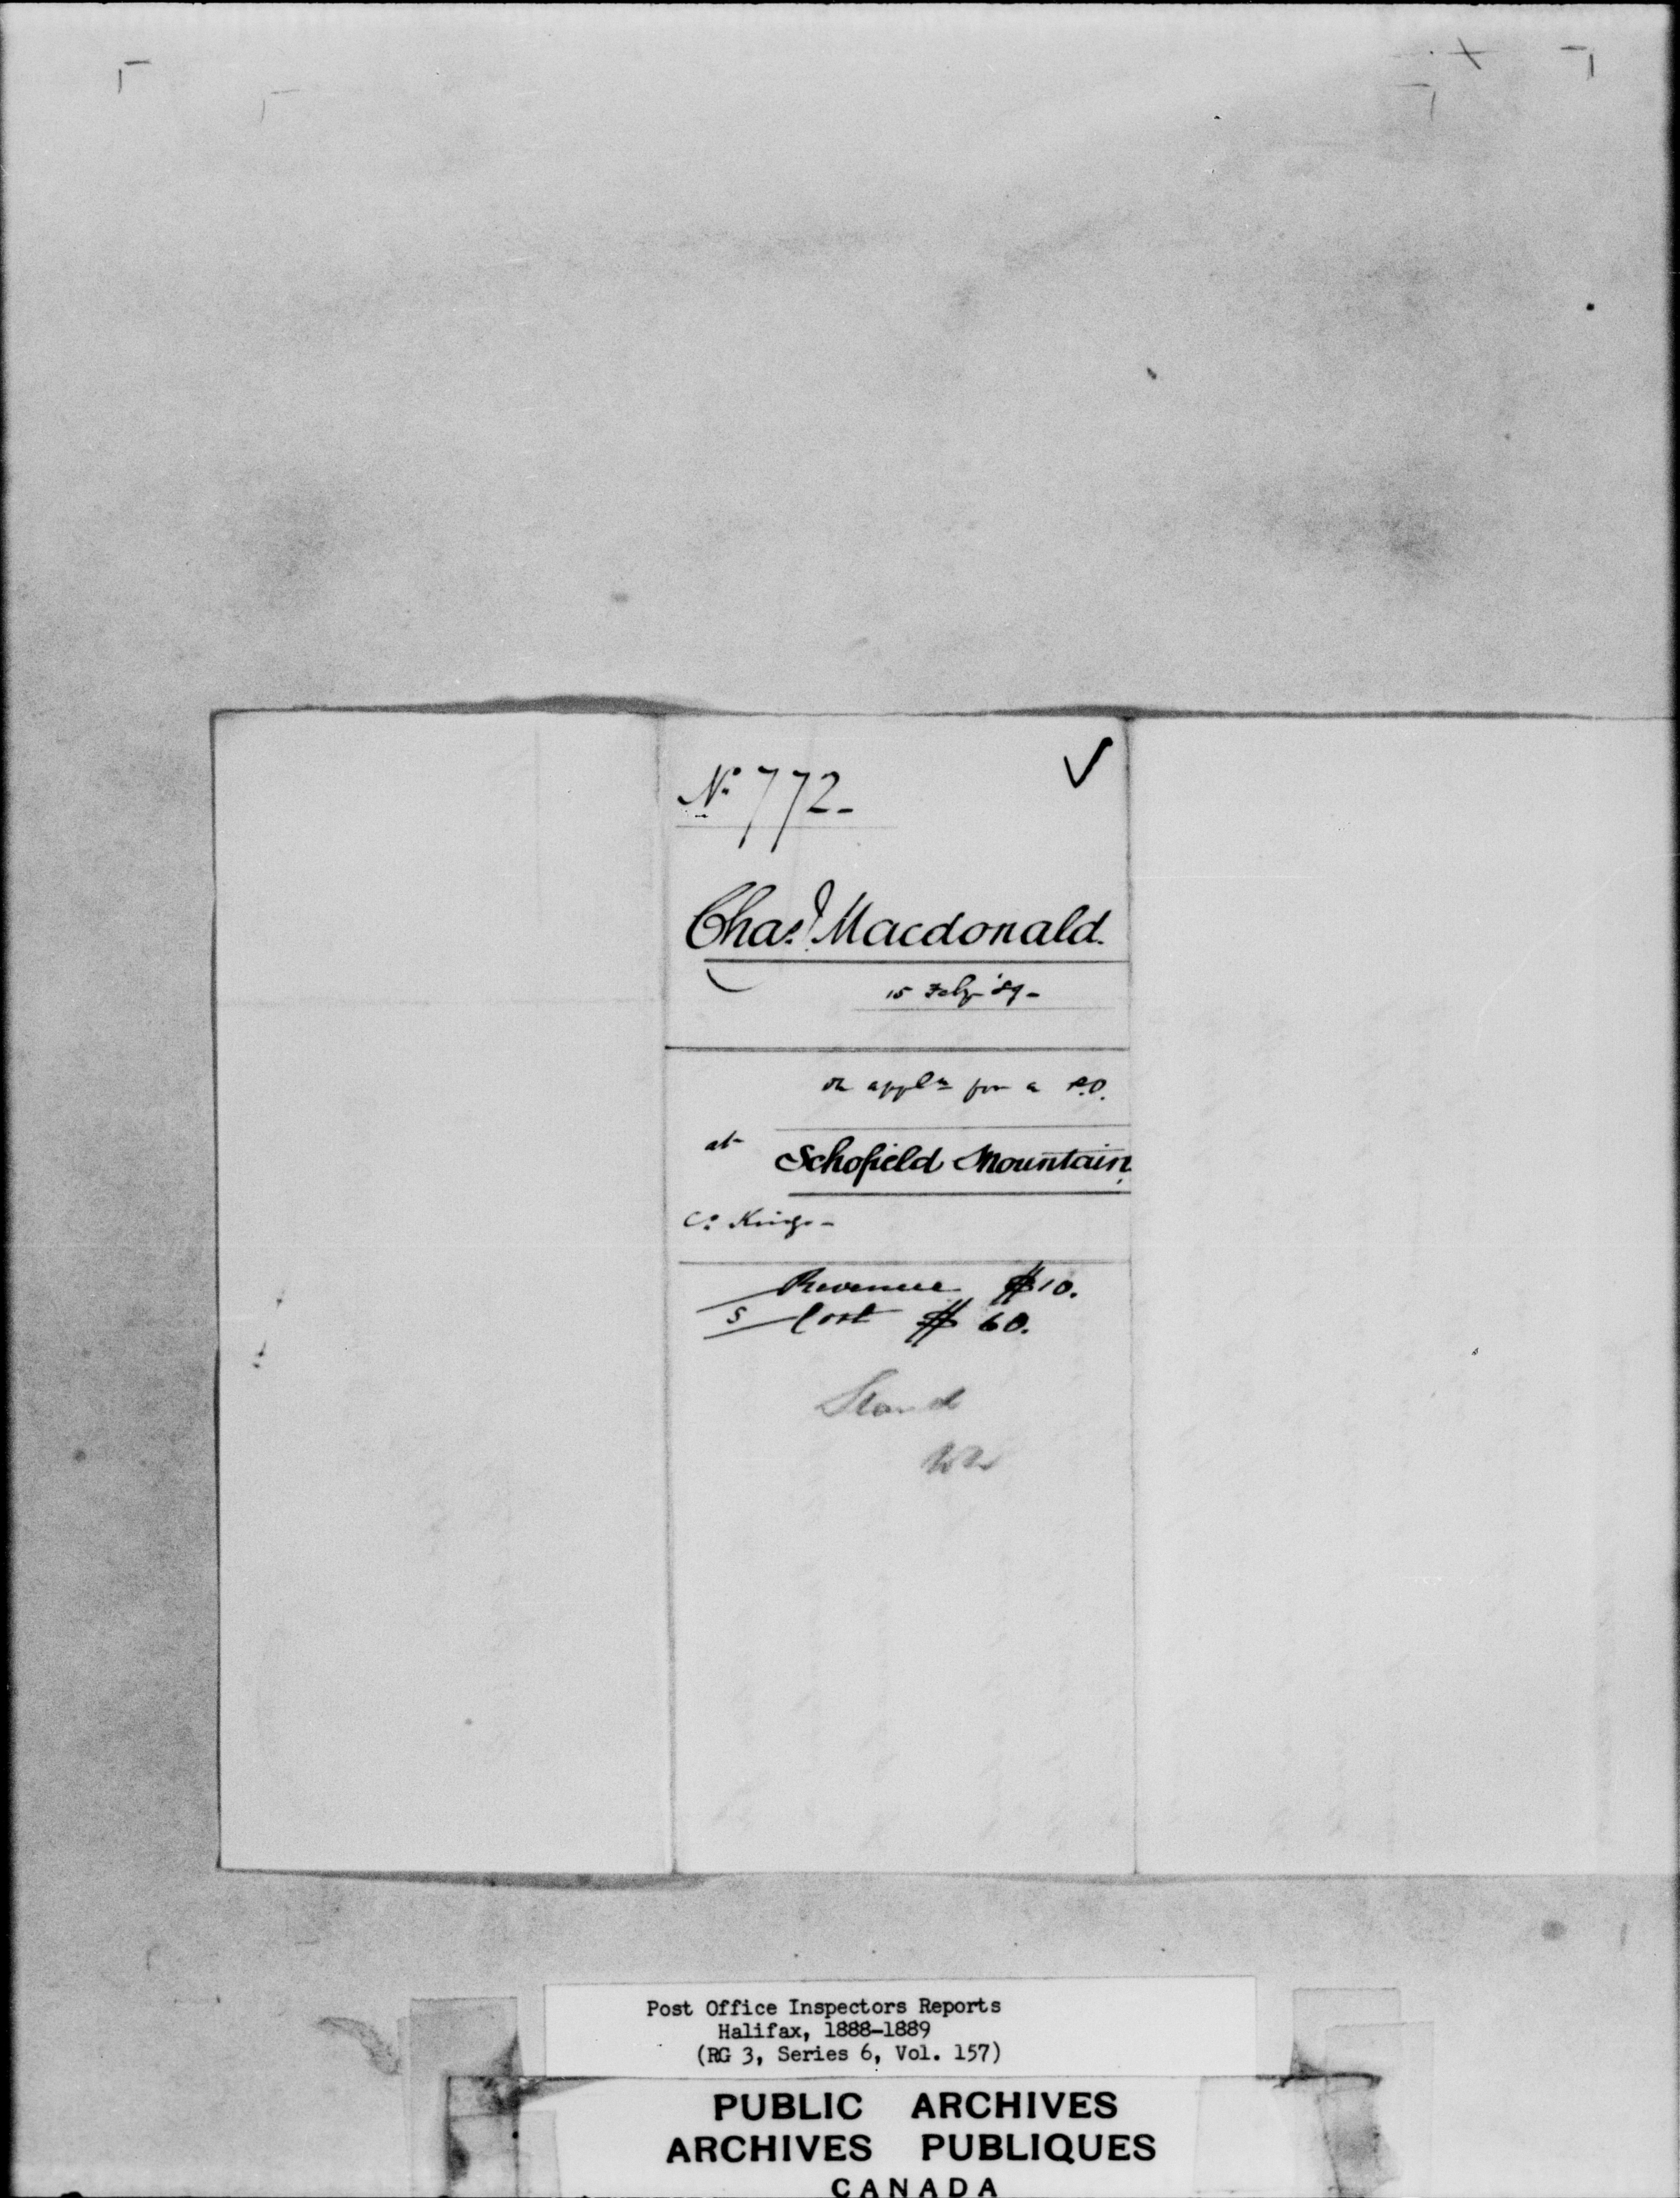 No. 772-
Chas. Macdonald.
15 Feby '89-
on appln for a P.O.
at Schofield Mountain,
Co. Kings-
Revenue $10.
S Cost $60.
Stand
Post Office Inspectors Reports
Halifax, 1888-1889
(RG 3, Series 6, Vol. 157)
PUBLIC ARCHIVES
ARCHIVES PUBLIQUES
CANADA